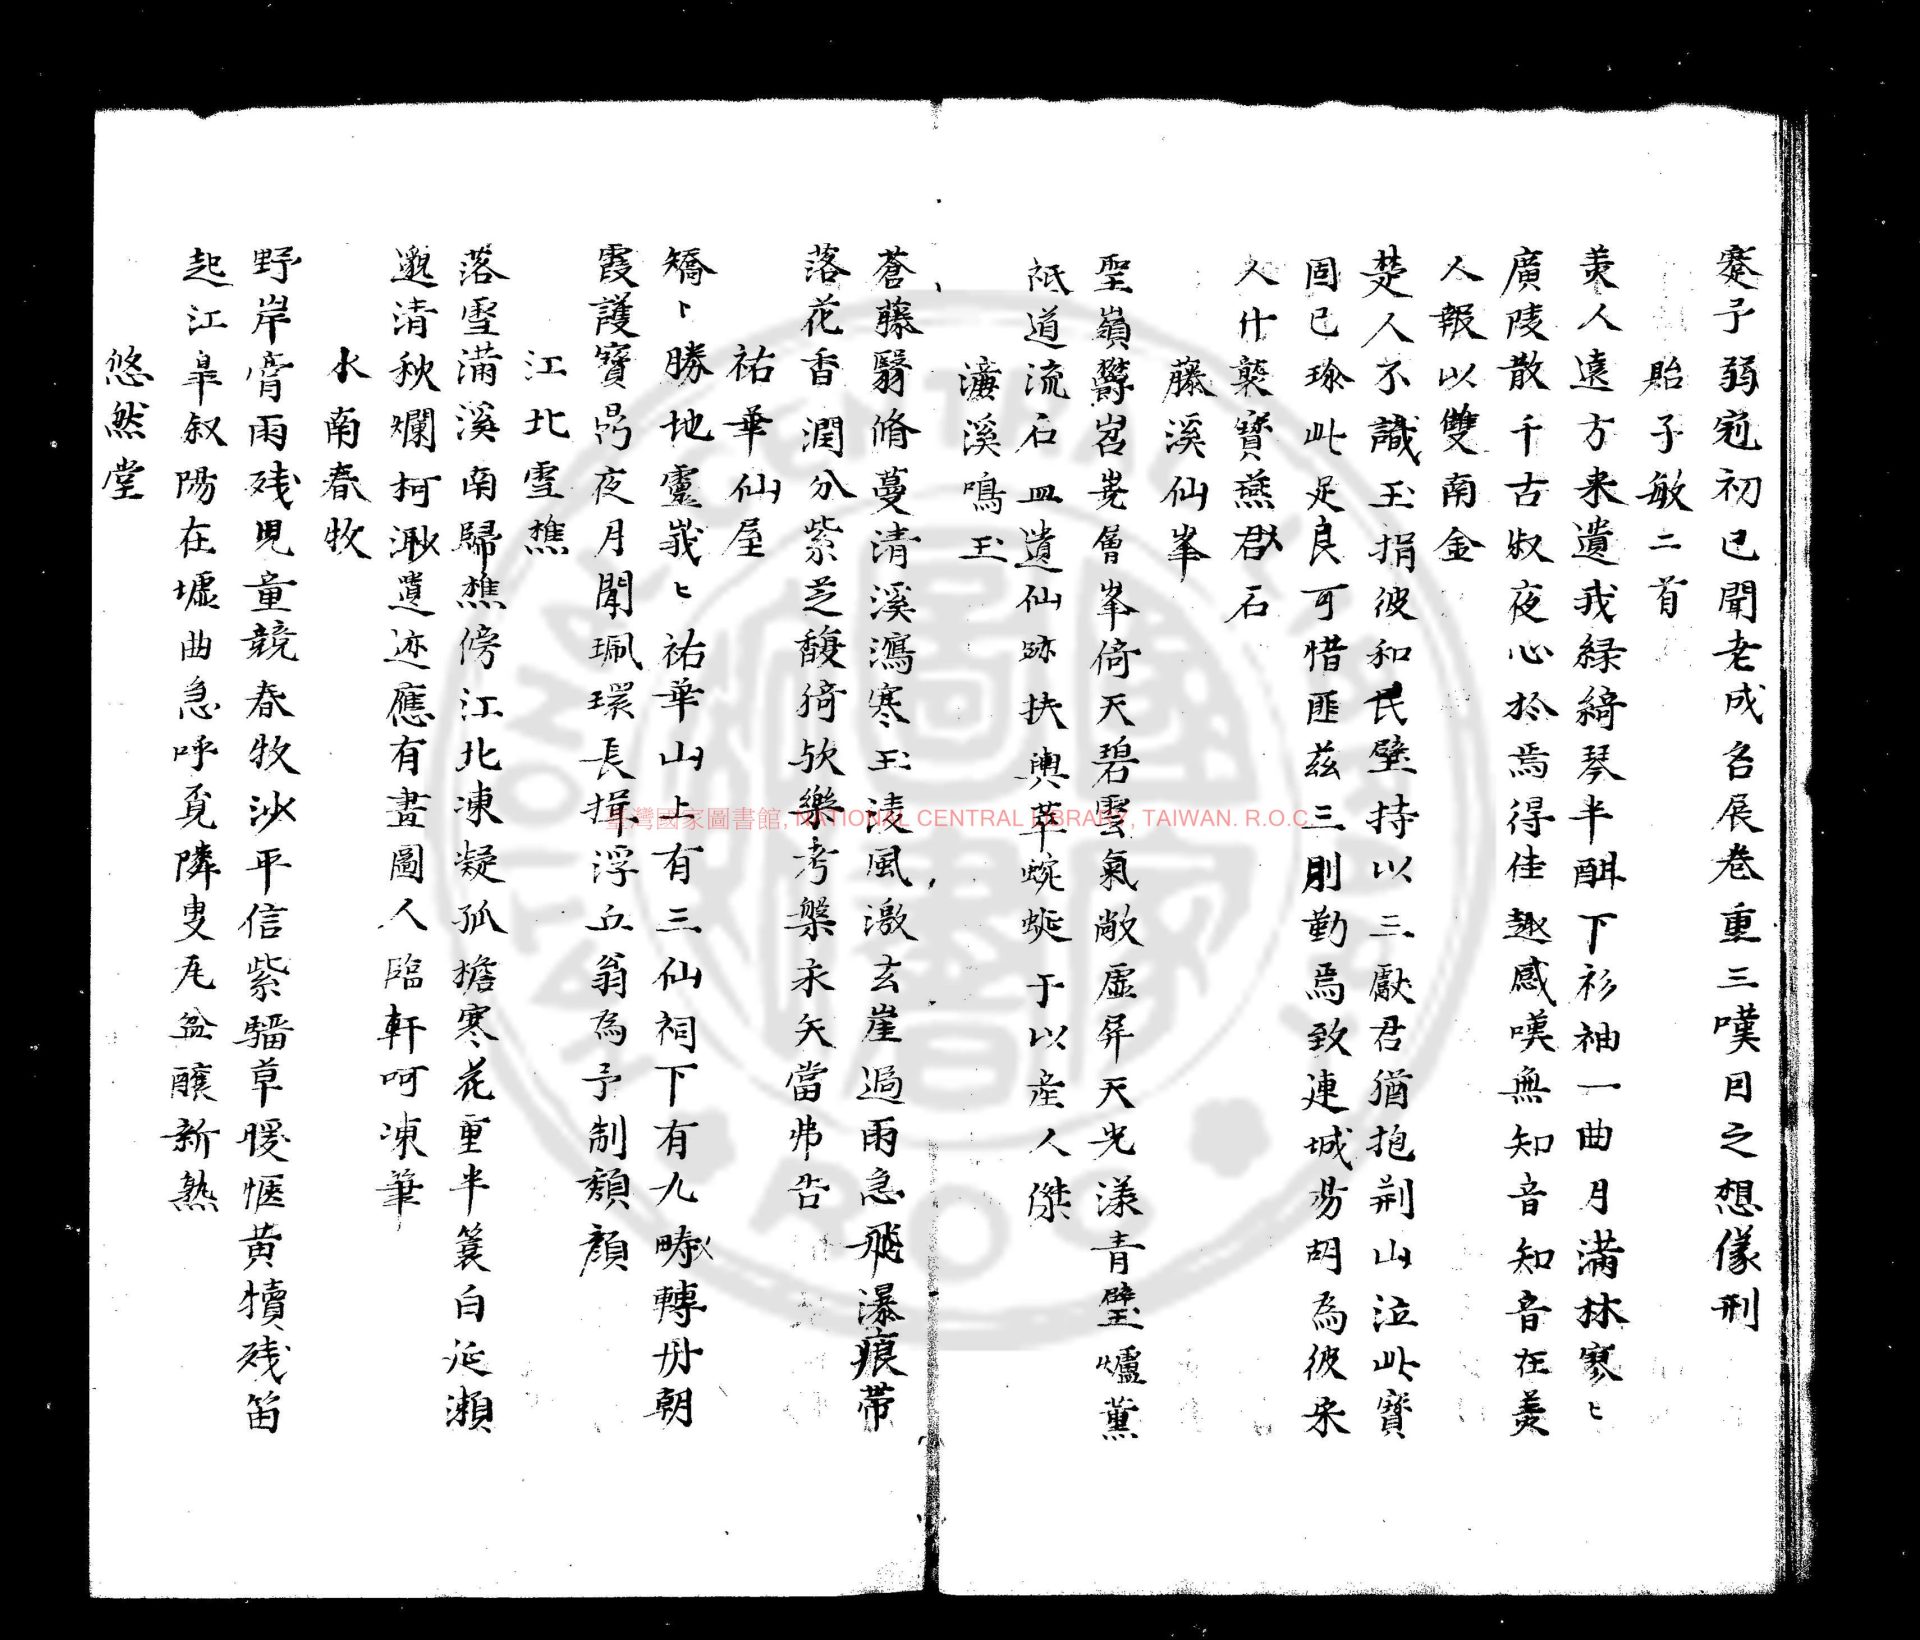 蹇予弱冠初已聞老成名展卷重三嘆目之想儀刑
貽子敏二首
美人遠方来遺我緑綺琴半酣下衫袖一曲月滿林寥〻
廣陵散千古叔夜心於焉得佳趣感嘆無知音知音在美
人報以雙南金
楚人不識玉捐彼和氏璧持以三獻君猶抱荊山泣此寶
固已珎此足良可惜匪兹三刖勤焉致連城昜胡為彼宋
人什襲寶燕石
藤溪仙峯
聖嶺欝岧嶤層峯倚天碧雲氣敞虛屏天光漾青壁爐薰
祗道流石皿遺仙跡扶輿萃蜿蜒于以産人傑
濂溪鳴玉
蒼藤翳脩蔓清溪瀉寒玉淩風激玄崖過雨急飛瀑痕帶
落花香潤分紫芝馥猗欤樂考槃永矢當弗告
祐華仙屋
矯〻勝地靈峩〻祐華山上有三仙祠下有九疇轉丹朝
霞護寶曷夜月聞珮環長揖浮丘翁為予制頹顏
江北雪樵
落雪滿溪南歸樵傍江北凍凝孤檐寒花重半簑白延瀬
邈清秋爛柯渺遺迹應有畫圖人臨軒呵凍筆
水南春牧
野岸膏雨残児童競春牧沙平信紫騮草暖惬黄犢残笛
起江臯叙陽在墟曲急呼覓隣叟瓦盆釀新熟
悠然堂
臺灣國家圖書館, NATIONAL CENTRAL LIBRARY, TAIWAN. R.O.C.